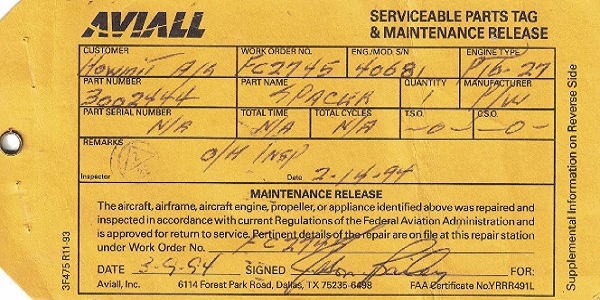 AVIALL
SERVICEABLE PARTS TAG
& MAINTENANCE RELEASE
CUSTOMER WORK ORDER NO. ENG./MOD. S/N ENGINE TYPE
FC2745 40681 Pt6-27
PART NUMBER PART NAME QUANTITY MANUFACTURER
3002444 SPACER 1 P/W
PART SERIAL NUMBER TOTAL TIME TOTAL CYCLES T.S.O. C.S.O.
N/A N/A N/A -0- -0-
REMARKS
O/H INSP
Inspector Date 2-14-94
MAINTENANCE RELEASE
The aircraft, airframe, aircraft engine, propeller, or appliance identified above was repaired and
inspected in accordance with current Regulations of the Federal Aviation Administration and
is approved for return to service. Pertinent details of the repair are on file at this repair station
under Work Order No. FC2745
DATE 3-9-94 SIGNED FOR:
Aviall, Inc. 6114 Forest Park Road, Dallas, TX 75235-6498 FAA Certificate No.YRRR491L
3F475 R11-93
Supplemental Information on Reverse Side